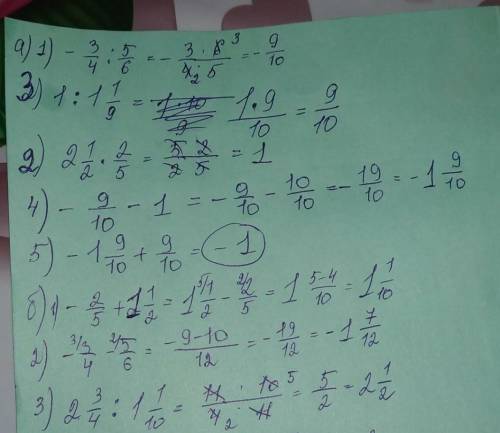 а) 1) - 3/4 : 5/6 = - 3·6 3/4 2·5 = - 9/10
3) 1 : 1 1/9 = 1·10/9 1·9/10 = 9/10
2) 2 1/2 · 2/5 = 5 2/2 5 = 1
4) - 9/10 - 1 = - 9/10 - 10/10 = - 19/10 = - 1 9/10
5) - 1 9/10 + 9/10 = - 1
б) 1) - 2/5 + 1 1/2 = 1 5/ 1/2 - 2/ 2/5 = 1 5-4/10 = 1 1/10
2) - 3/ 3/4 - 2/ 5/6 = -9-10/12 = - 19/12 = - 1 7/12
3) 2 3/4 : 1 1/10 = 11 · 10 5/4 2 · 11 = 5/2 = 2 1/2